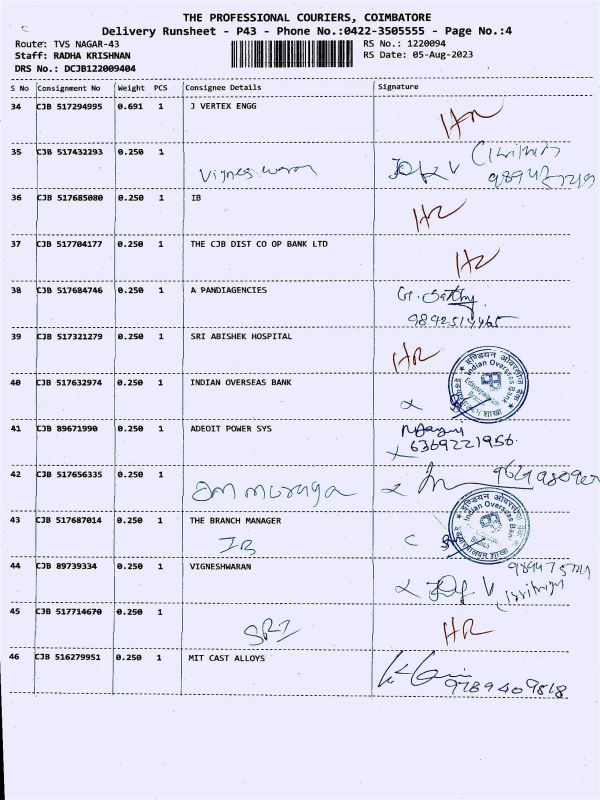 THE PROFESSIONAL COURIERS, COIMBATORE
Delivery Runsheet - P43 - Phone No.:0422-3505555 - Page No.:4
Route: TVS NAGAR-43 RS No.: 1220094
Staff: RADHA KRISHNAN RS Date: 05-Aug-2023
DRS No.: DCJB122009404
S No Consignment No Weight PCS Consignee Details Signature
34 CJB 517294995 0.691 1 J VERTEX ENGG HR
35 CJB 517432293 0.250 1
Vignes waran
36 CJB 517685080 0.250 1 IB HR
37 CJB 517704177 0.250 1 THE CJB DIST CO OP BANK LTD HR
38 CJB 517684746 0.250 1 A PANDIAGENCIES
9842514465
39 CJB 517321279 0.250 1 SRI ABISHEK HOSPITAL HR
40 CJB 517632974 0.250 1 INDIAN OVERSEAS BANK
इण्डियन ओवरसीज़ बैंक
Indian Overseas Bank
शाखा
41 CJB 89671990 0.250 1 ADEOIT POWER SYS
6369221956
42 CJB 517656335 0.250 1
Om muruga
43 CJB 517687014 0.250 1 THE BRANCH MANAGER
IB
इण्डियन ओवरसीज़ बैंक
Indian Overseas Bank
शाखा
44 CJB 89739334 0.250 1 VIGNESHWARAN
45 CJB 517714670 0.250 1
SRI HR
46 CJB 516279951 0.250 1 MIT CAST ALLOYS
9789409818